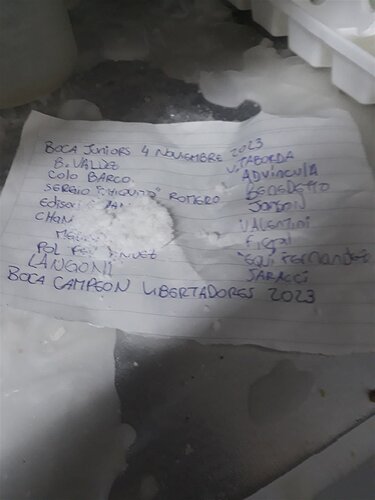 BOCA JUNIORS 4 NOVIEMBRE 2023
B. VALDEZ
COLO BARCO
SERGIO "CHIQUITO" ROMERO
Edison
CHAN
ME
POL FERNANDEZ
LANGONI
V. TABORDA
ADVINCULA
BENEDETTO
JANSON
VALENTINI
Figal
"EQUI FERNANDEZ
SARACCI
BOCA CAMPEON LIBERTADORES 2023